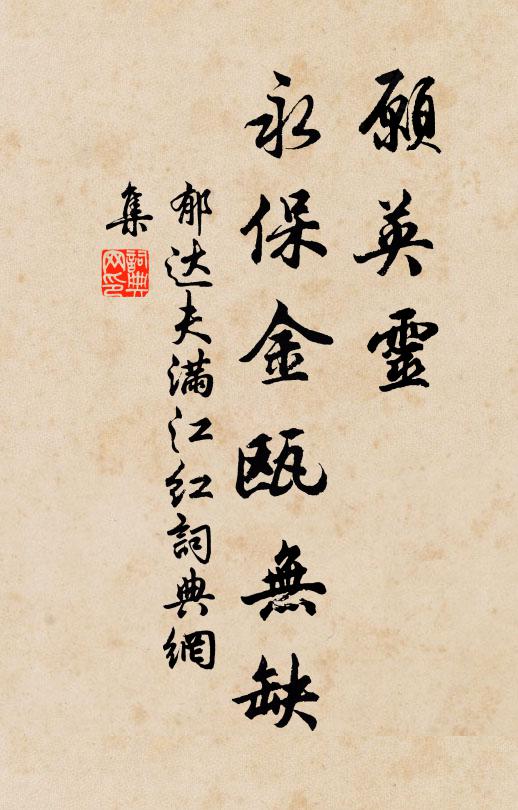 願英靈
永保金瓯無缺
郁达夫满江红詞典網
集
詞典
网印